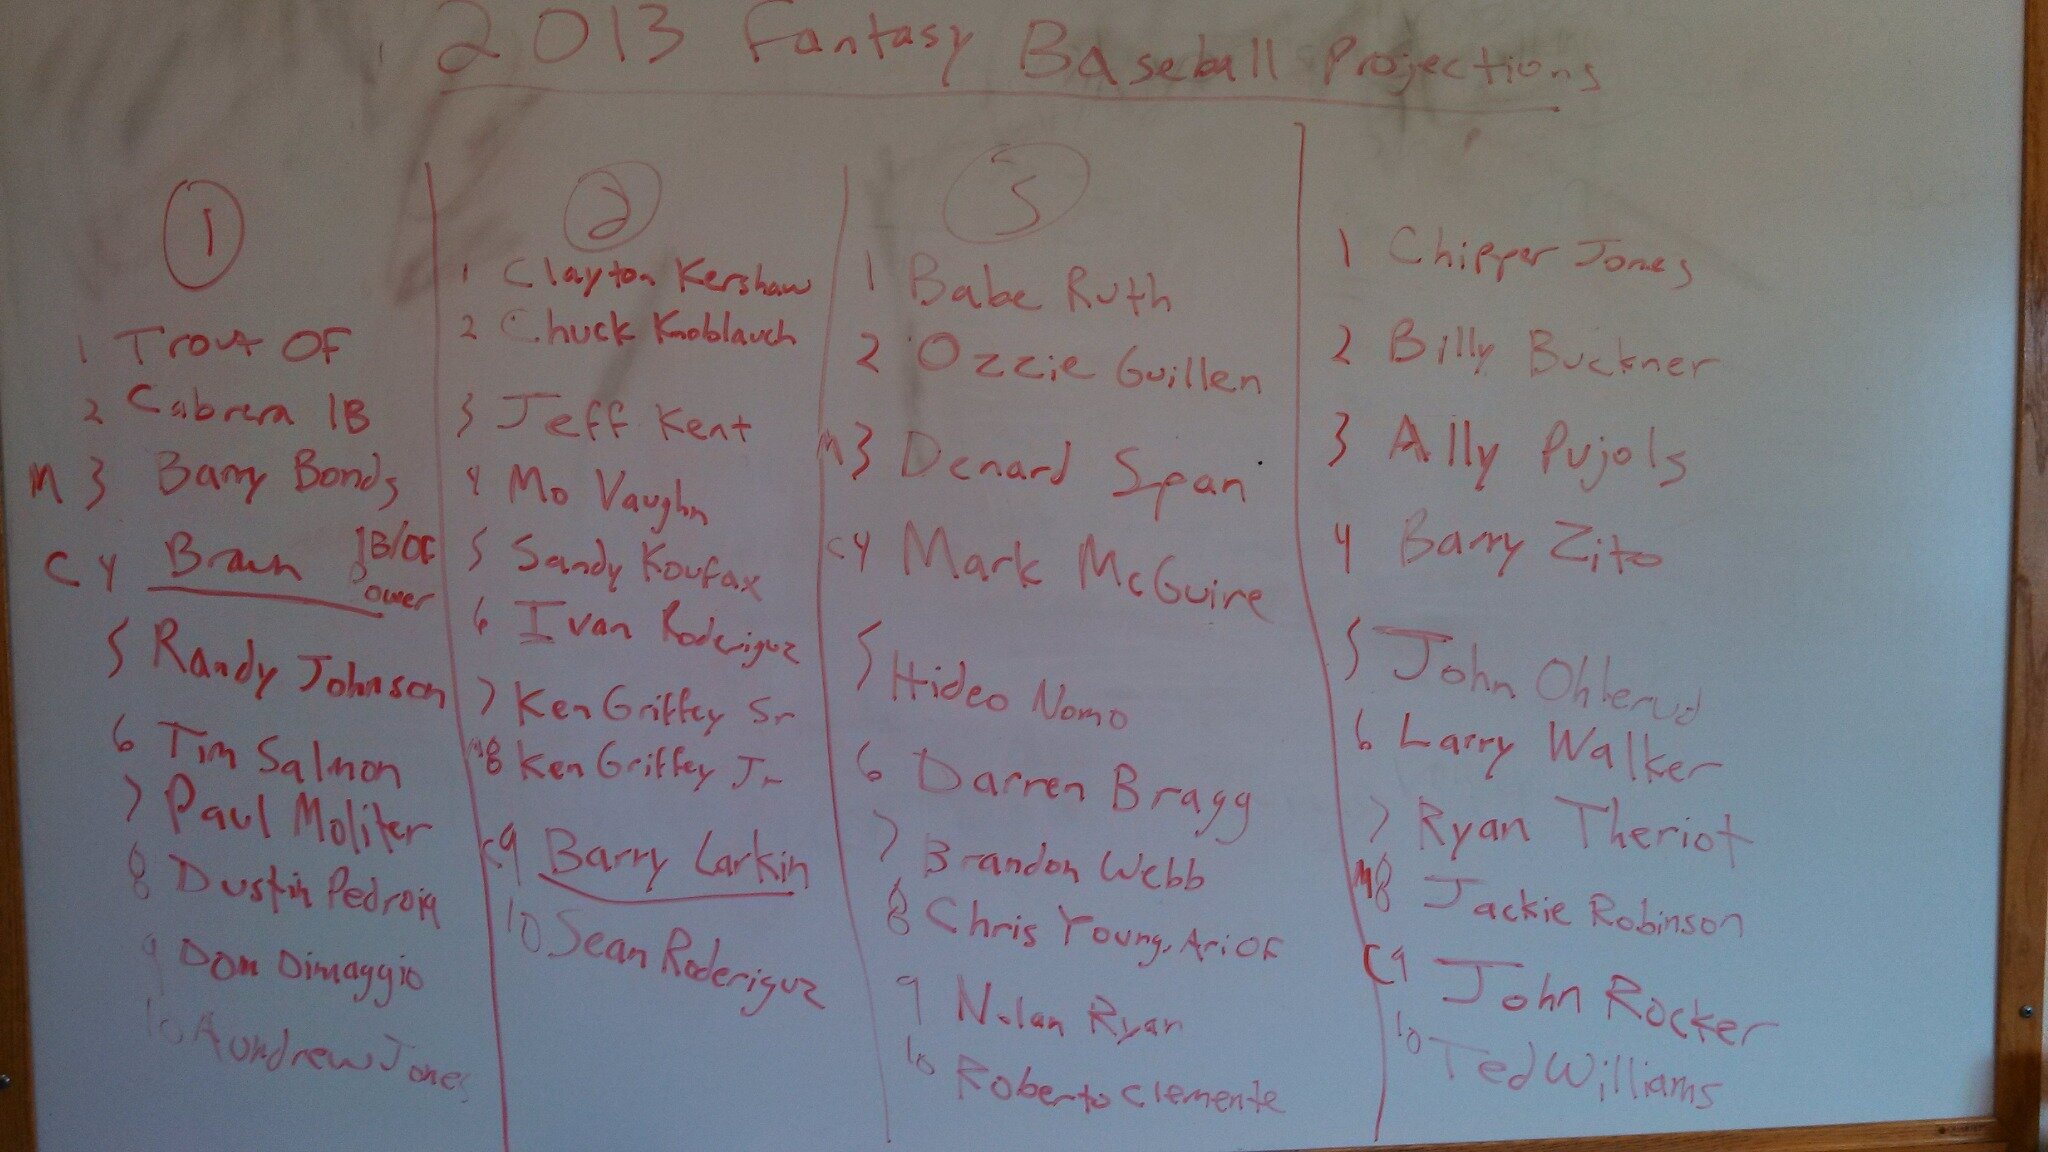 2013 Fantasy Baseball Projections
1
1 Trout OF
2 Cabrera 1B
M 3 Barry Bonds
C 4 Braun 1B/OF
Power
5 Randy Johnson
6 Tim Salmon
7 Paul Moliter
8 Dustin Pedroia
9 Dom Dimaggio
10 Aundrew Jones
2
1 Clayton Kershaw
2 Chuck Knoblauch
3 Jeff Kent
4 Mo Vaughn
5 Sandy Koufax
6 Ivan Roderiguz
7 Ken Griffey Sr
M8 Ken Griffey Jr
C9 Barry Larkin
10 Sean Roderiguz
3
1 Babe Ruth
2 Ozzie Guillen
M3 Denard Span
C4 Mark McGuire
5 Hideo Nomo
6 Darren Bragg
7 Brandon Webb
8 Chris Young, Ari OF
9 Nolan Ryan
10 Roberto Clemente
1 Chipper Jones
2 Billy Buckner
3 Ally Pujols
4 Barry Zito
5 John Ohlerud
6 Larry Walker
7 Ryan Theriot
M8 Jackie Robinson
C9 John Rocker
10 Ted Williams